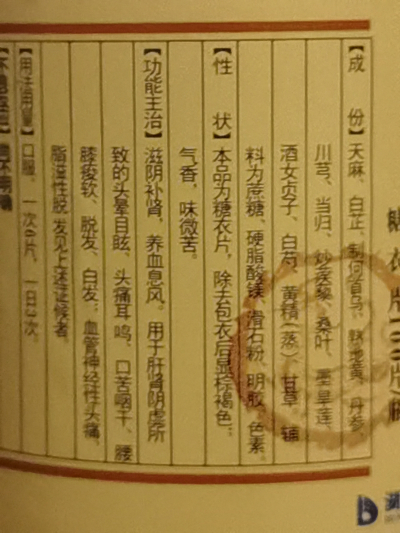 糖衣片
【成　份】天麻、白芷、制何首乌、熟地黄、丹参、
川芎、当归、炒蒺藜、桑叶、墨旱莲、
酒女贞子、白芍、黄精(蒸)、甘草　辅
料为蔗糖、硬脂酸镁、滑石粉、明胶、色素。
【性　状】本品为糖衣片，除去包衣后显棕褐色；
气香，味微苦。
【功能主治】滋阴补肾，养血息风。用于肝肾阴虚所
致的头晕目眩、头痛耳鸣、口苦咽干、腰
膝酸软、脱发、白发；血管神经性头痛、
脂溢性脱发见上述证候者。
【用法用量】口服。一次6片，一日3次。
【不良反应】尚不明确